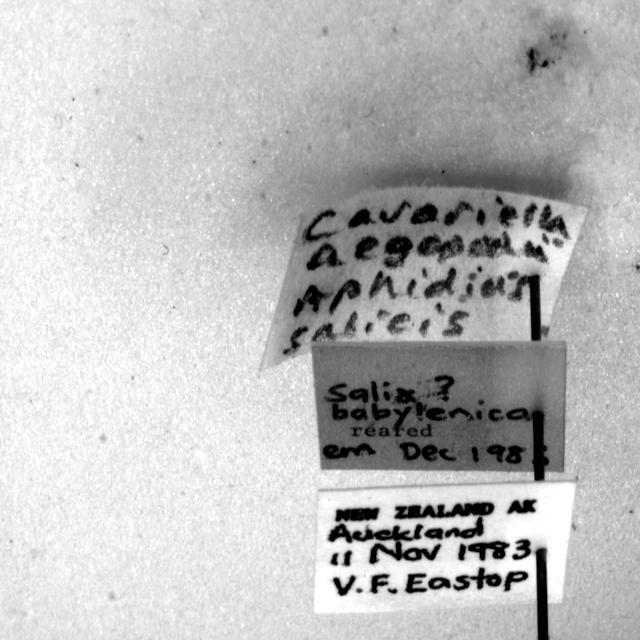 Cavariella
Aegopodii
Aphidius
salicis
Salix ?
babylenica
reared
em Dec 198
NEW ZEALAND AK
Auckland
11 Nov 1983
V.F. Eastop